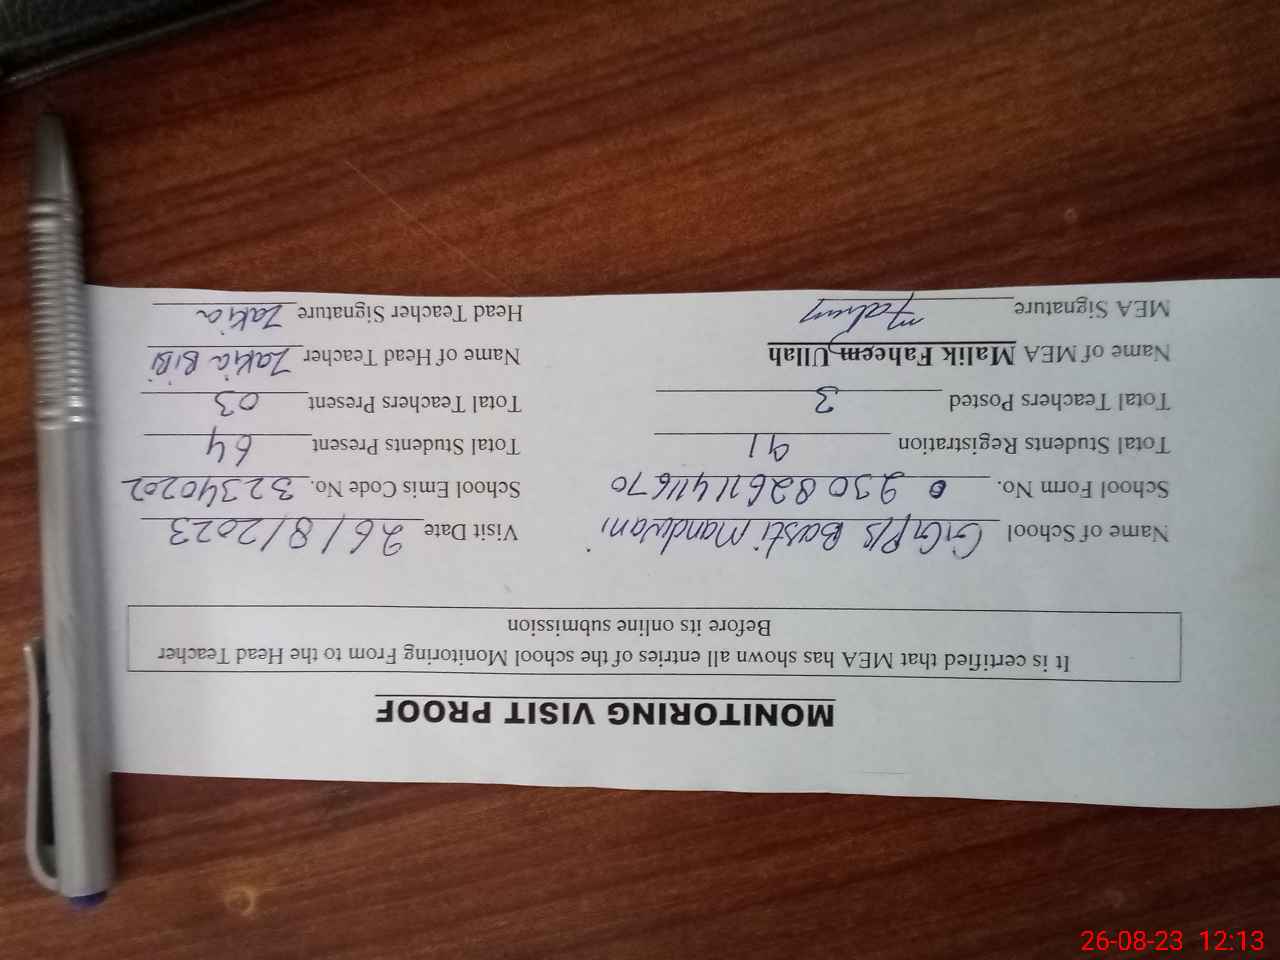 MONITORING VISIT PROOF
It is certified that MEA has shown all entries of the school Monitoring From to the Head Teacher
Before its online submission
Name of School GGP/S Basti Mandwani Visit Date 26/8/2023
School Form No. 23082611411670 School Emis Code No. 32340202
Total Students Registration 91 Total Students Present 64
Total Teachers Posted 3 Total Teachers Present 03
Name of MEA Malik Faheem Ullah Name of Head Teacher Zakia BiBi
MEA Signature Head Teacher Signature Zakia
26-08-23 12:13